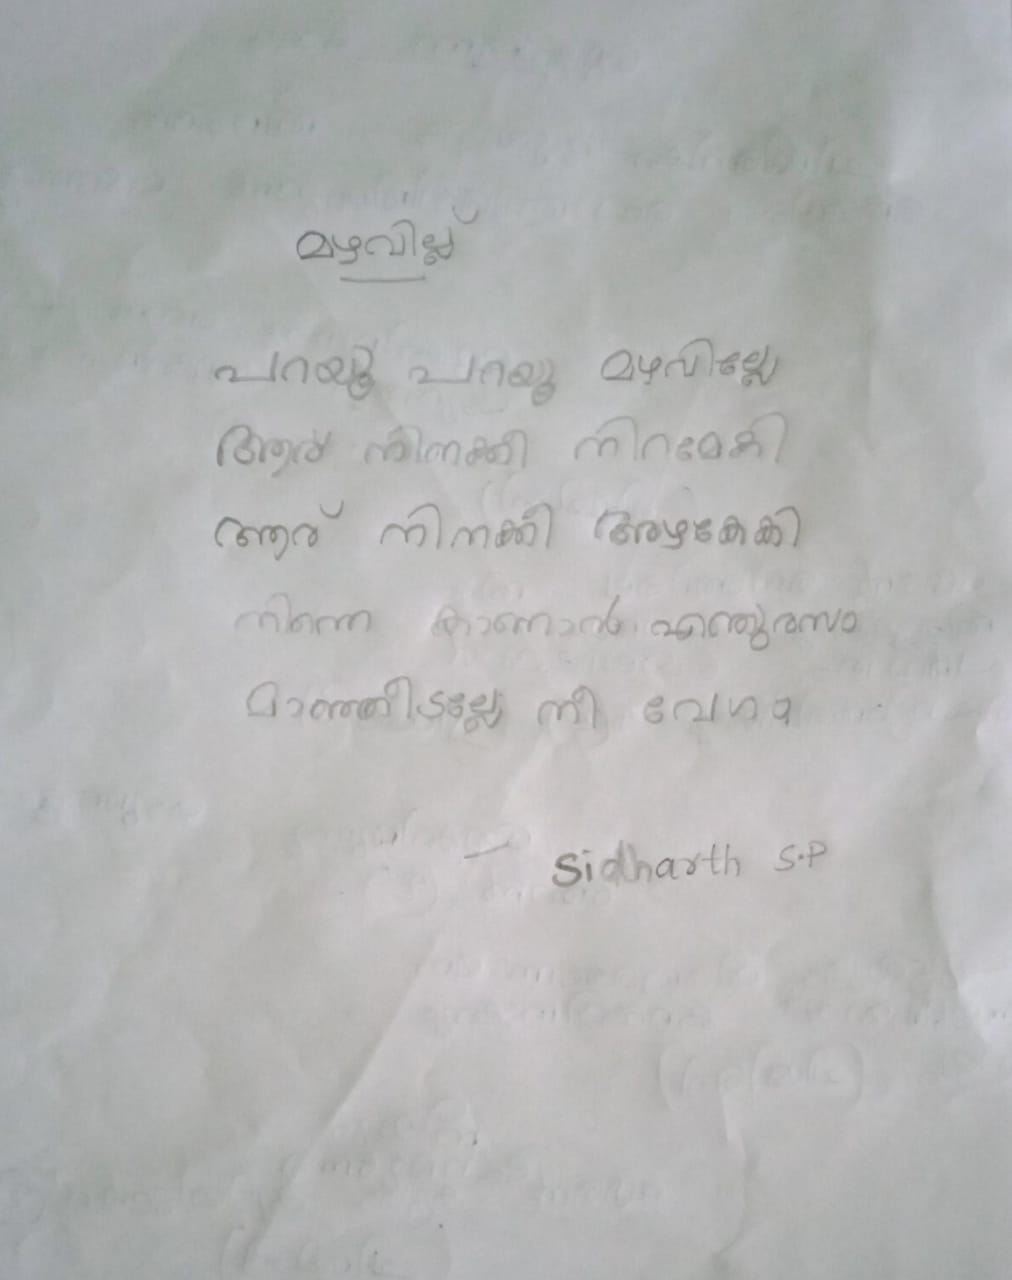 മഴവില്ല്
പറയൂ പറയൂ മഴവില്ലേ
ആര് നിനക്കീ നിറമേകി
ആര് നിനക്കീ അഴകേകി
നിന്നെ കാണാൻ എന്തുരസം
മാഞ്ഞീടല്ലേ നീ വേഗം
– Sidharth S.P